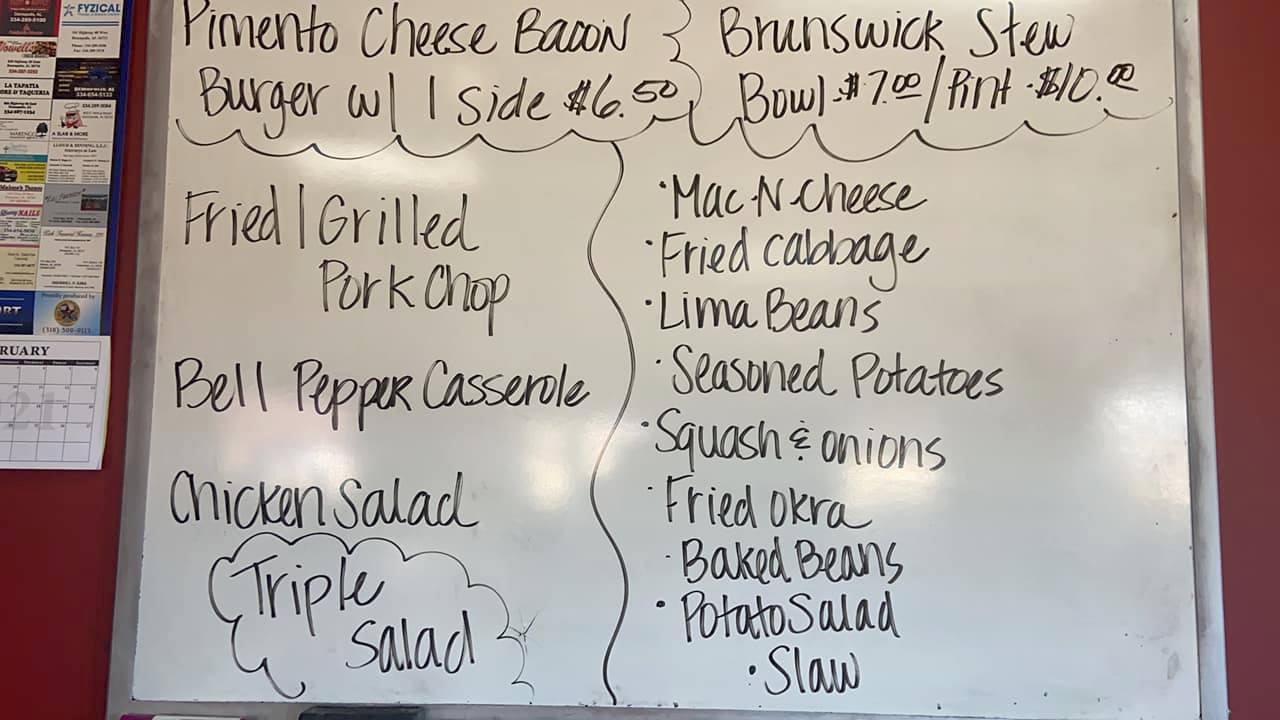 Pimento Cheese Bacon
Burger w/ 1 side $6.50
Brunswick Stew
Bowl-$7.00/Pint-$10.00
Fried/Grilled
Pork Chop
Bell Pepper Casserole
Chicken Salad
Triple
Salad
·Mac-N-Cheese
·Fried Cabbage
·Lima Beans
·Seasoned Potatoes
·Squash & onions
·Fried Okra
·Baked Beans
·Potato Salad
·Slaw
FYZICAL
LA TAPATIA
334-289-5084
A SLAB & MORE
NAILS
Proudly produced by
RUARY